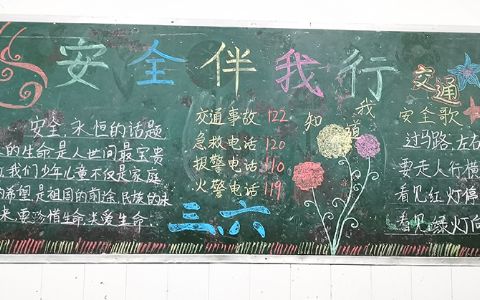 安全伴我行
安全,永恒的话题
的生命是人世间最宝贵
我们少年儿童不仅是家庭
的希望,是祖国的前途,民族的未
来,要珍惜生命,关爱生命.
交通事故 122
急救电话 120
报警电话 110
火警电话 119
三、六
我知道
交通
安全歌
过马路,左右
要走人行横
看见红灯停
看见绿灯向